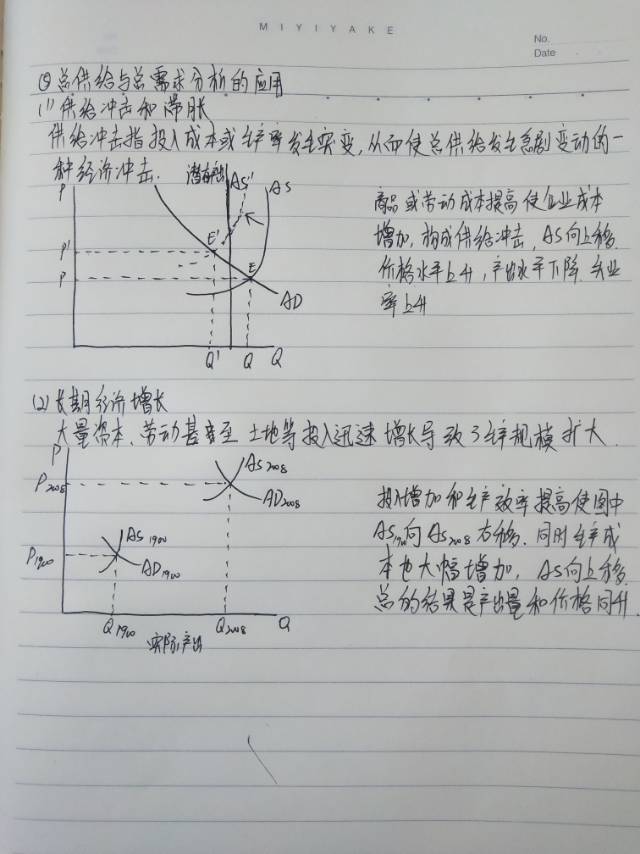 MIYIYAKE
No.
Date
③总供给与总需求分析的应用
(1)供给冲击和滞胀
供给冲击指投入成本或生产率发生突变,从而使总供给发生急剧变动的一
种经济冲击.
P 潜在产出 AS' AS
P' E'
P E
AD
Q' Q Q
商品或劳动成本提高使企业成本
增加,构成供给冲击,AS向上移.
价格水平上升,产出水平下降 失业
率上升
(2)长期经济增长
大量资本、劳动甚至 土地等投入迅速增长导致了生产规模扩大.
P
P2008 AS2008
AD2008
AS1900
P1900 AD1900
Q1900 Q2008 Q
实际产出
投入增加和生产效率提高使图中
AS1900向AS2008右移.同时生产成
本也大幅增加,AS向上移.
总的结果是产出量和价格同升.